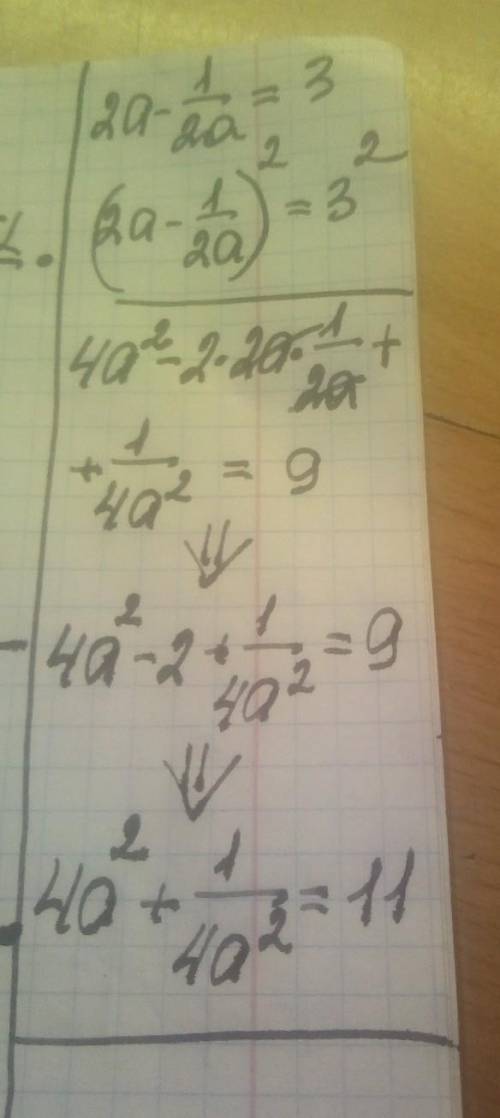 2a - 1/2a = 3
(2a - 1/2a)² = 3²
4a² - 2 · 2a · 1/2a +
+ 1/4a² = 9
⇓
4a² - 2 + 1/4a² = 9
⇓
4a² + 1/4a² = 11